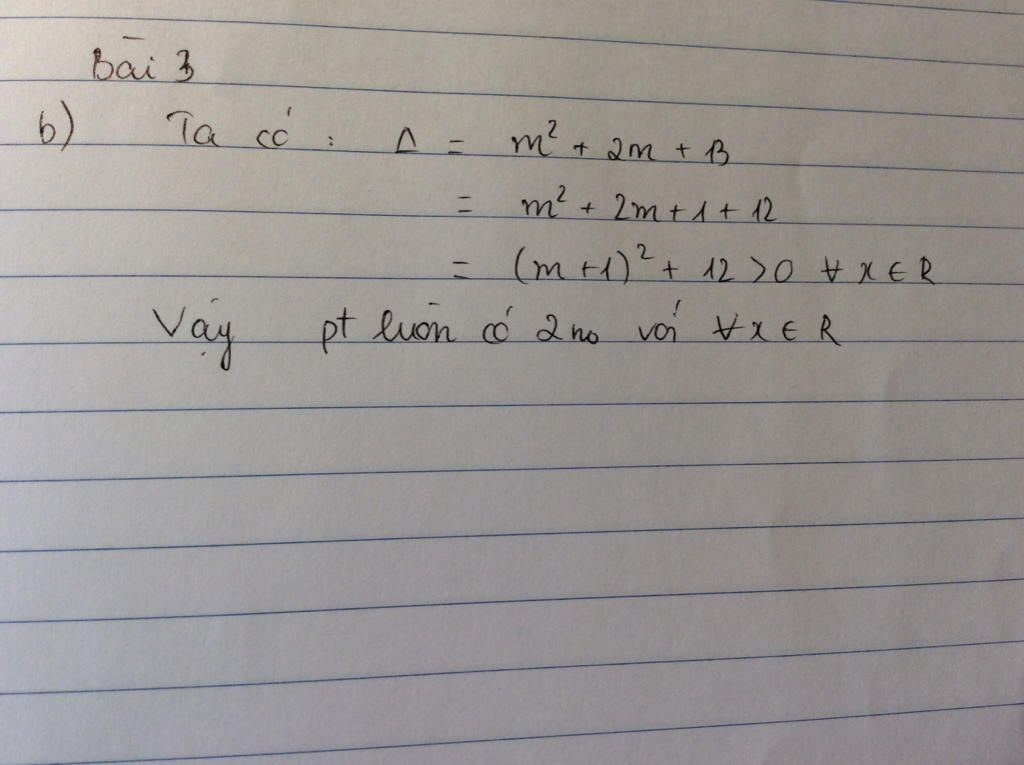 Bài 3
b) Ta có : Δ = m² + 2m + 13
= m² + 2m + 1 + 12
= (m + 1)² + 12 > 0 ∀ x ∈ R
Vậy pt luôn có 2 no với ∀ x ∈ R